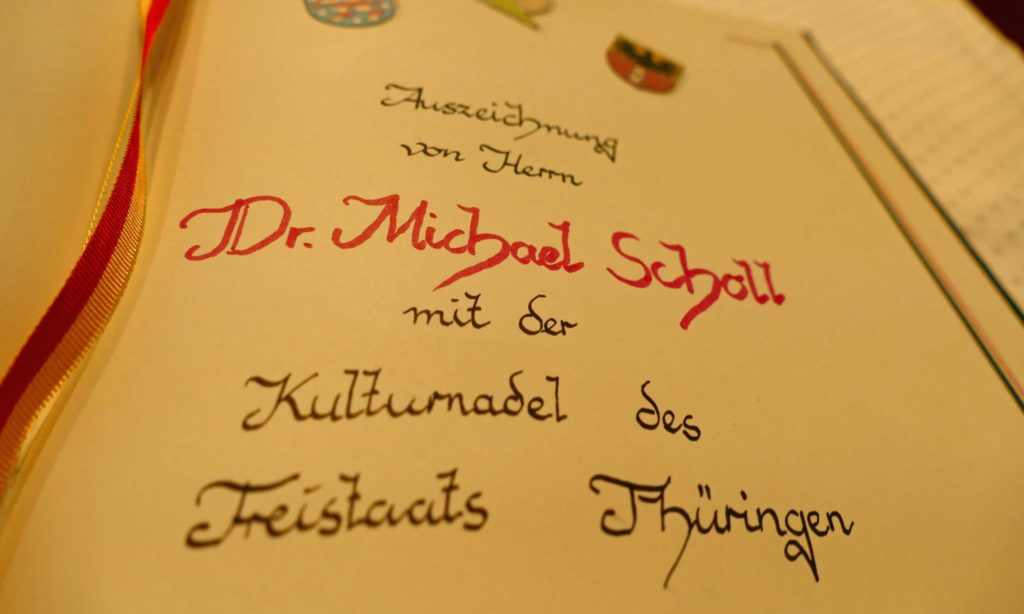 Auszeichnung
von Herrn
Dr. Michael Scholl
mit der
Kulturnadel des
Freistaats Thüringen